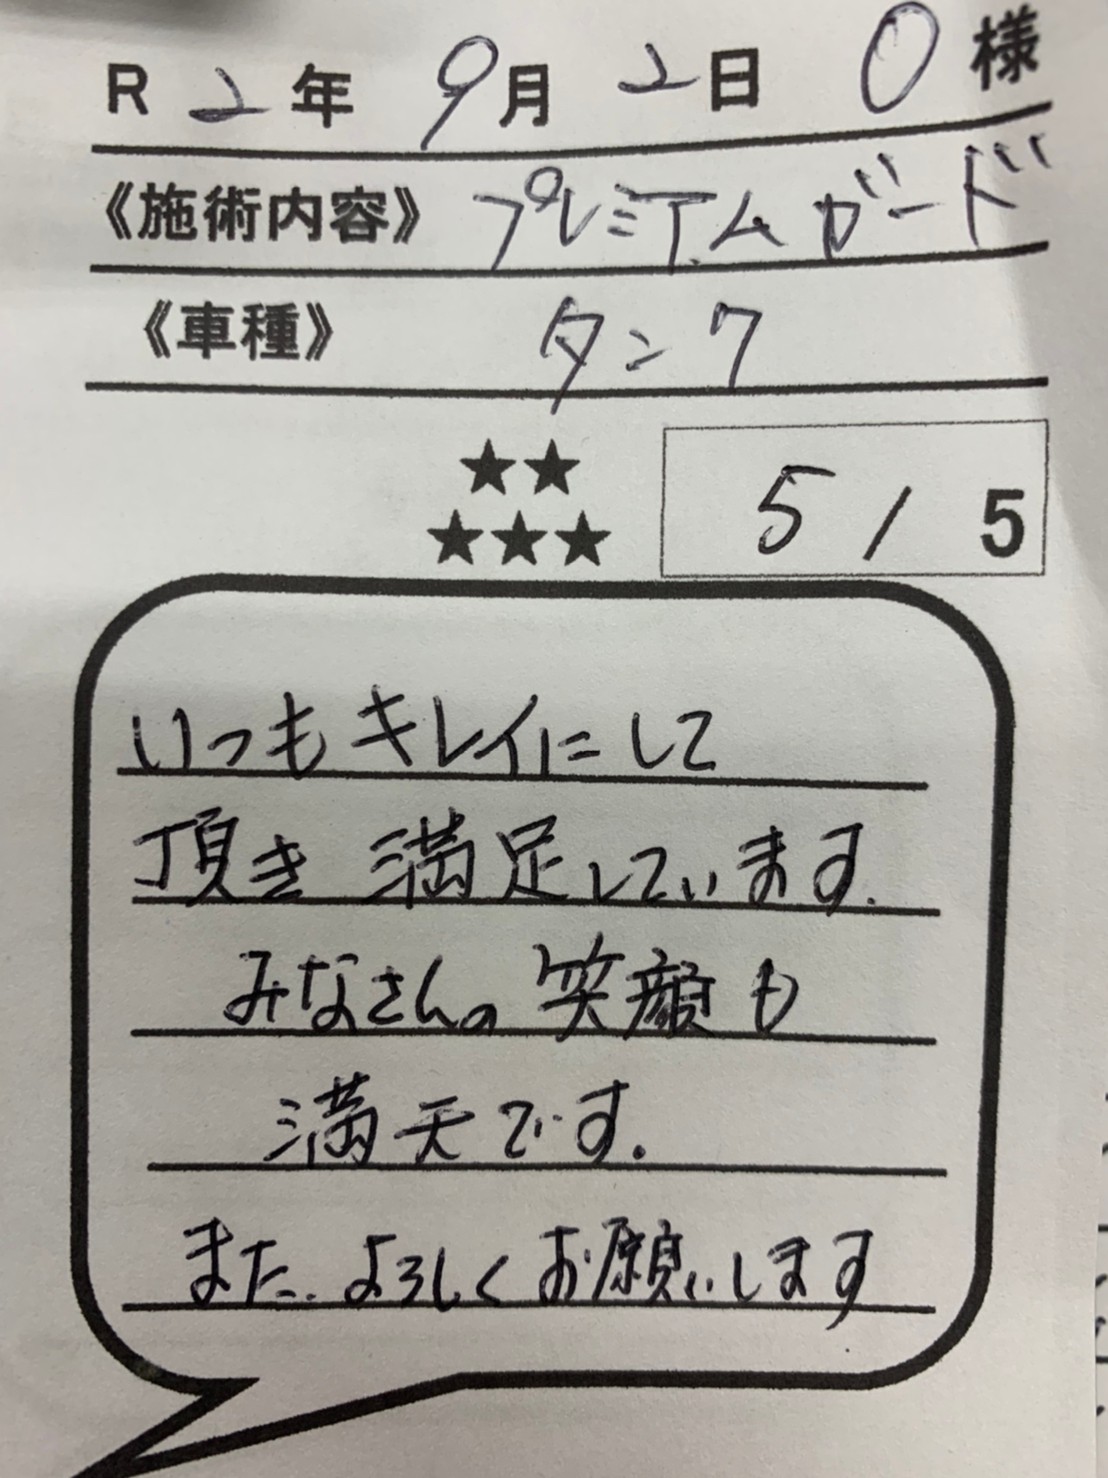 R 2年 9月 2日 O様
《施術内容》 プレミアムガード
《車種》 タンク
★★
★★★ 5 / 5
いつもキレイにして
頂き 満足しています.
みなさんの 笑顔も
満天です.
また.よろしくお願いします